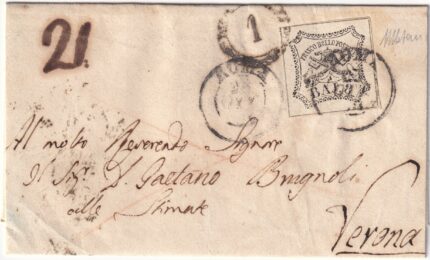 21
1
ROMA
FRANCO BOLLO POSTALE
ROMA
BAJ
Al molto Reverendo Signore
Il Sigr D. Gaetano Brugnoli
alle Stimate
Verona